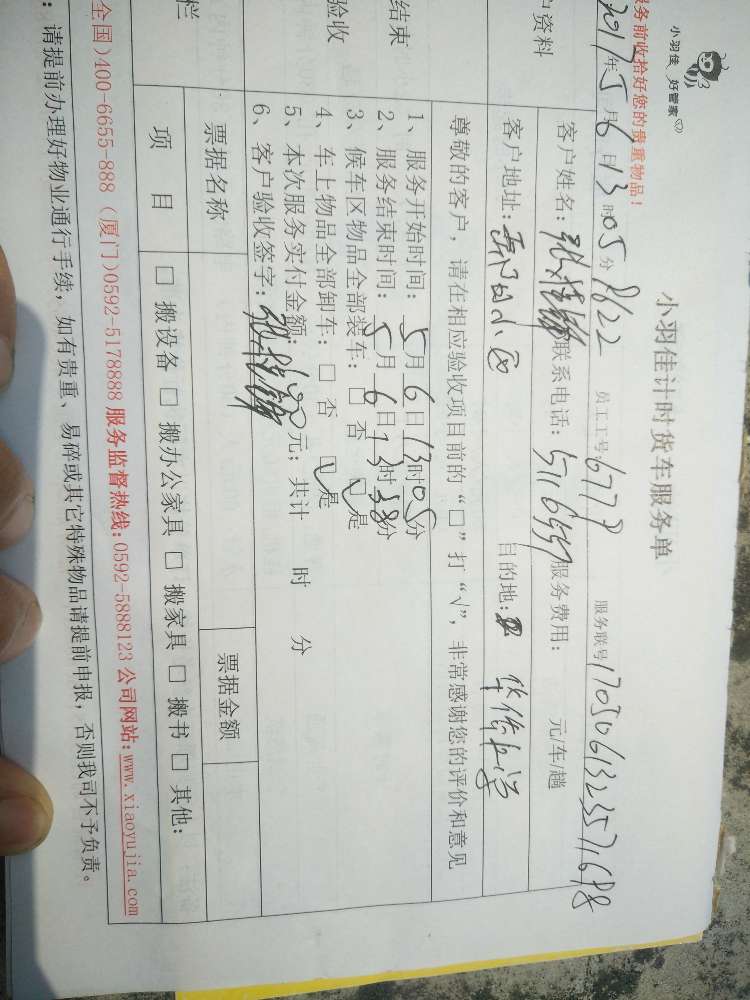 小羽佳 好管家
小羽佳计时货车服务单
服务前收拾好您的贵重物品！
2017年5月6日13时05分 8622 员工工号:6779 服务联号
户资料 客户姓名: 联系电话: 服务费用: 元/车/趟
客户地址: 目的地: 华侨大学
尊敬的客户，请在相应验收项目前的“□”打“√”，非常感谢您的评价和意见
结束
验收
1、服务开始时间: 5月6日13时05分
2、服务结束时间: 5月6日13时38分
3、候车区物品全部装车: □ 否 ☑是
4、车上物品全部卸车: □ 否 ☑是
5、本次服务实付金额: 元; 共计 时 分
6、客户验收签字:
栏 票据名称 票据金额
项 目 □ 搬设备 □ 搬办公家具 □ 搬家具 □ 搬书 □ 其他:
全国)400-6655-888 (厦门)0592-5178888 服务监督热线:0592-5888123 公司网站:www.xiaoyujia.com
：请提前办理好物业通行手续，如有贵重、易碎或其它特殊物品请提前申报，否则我司不予负责。